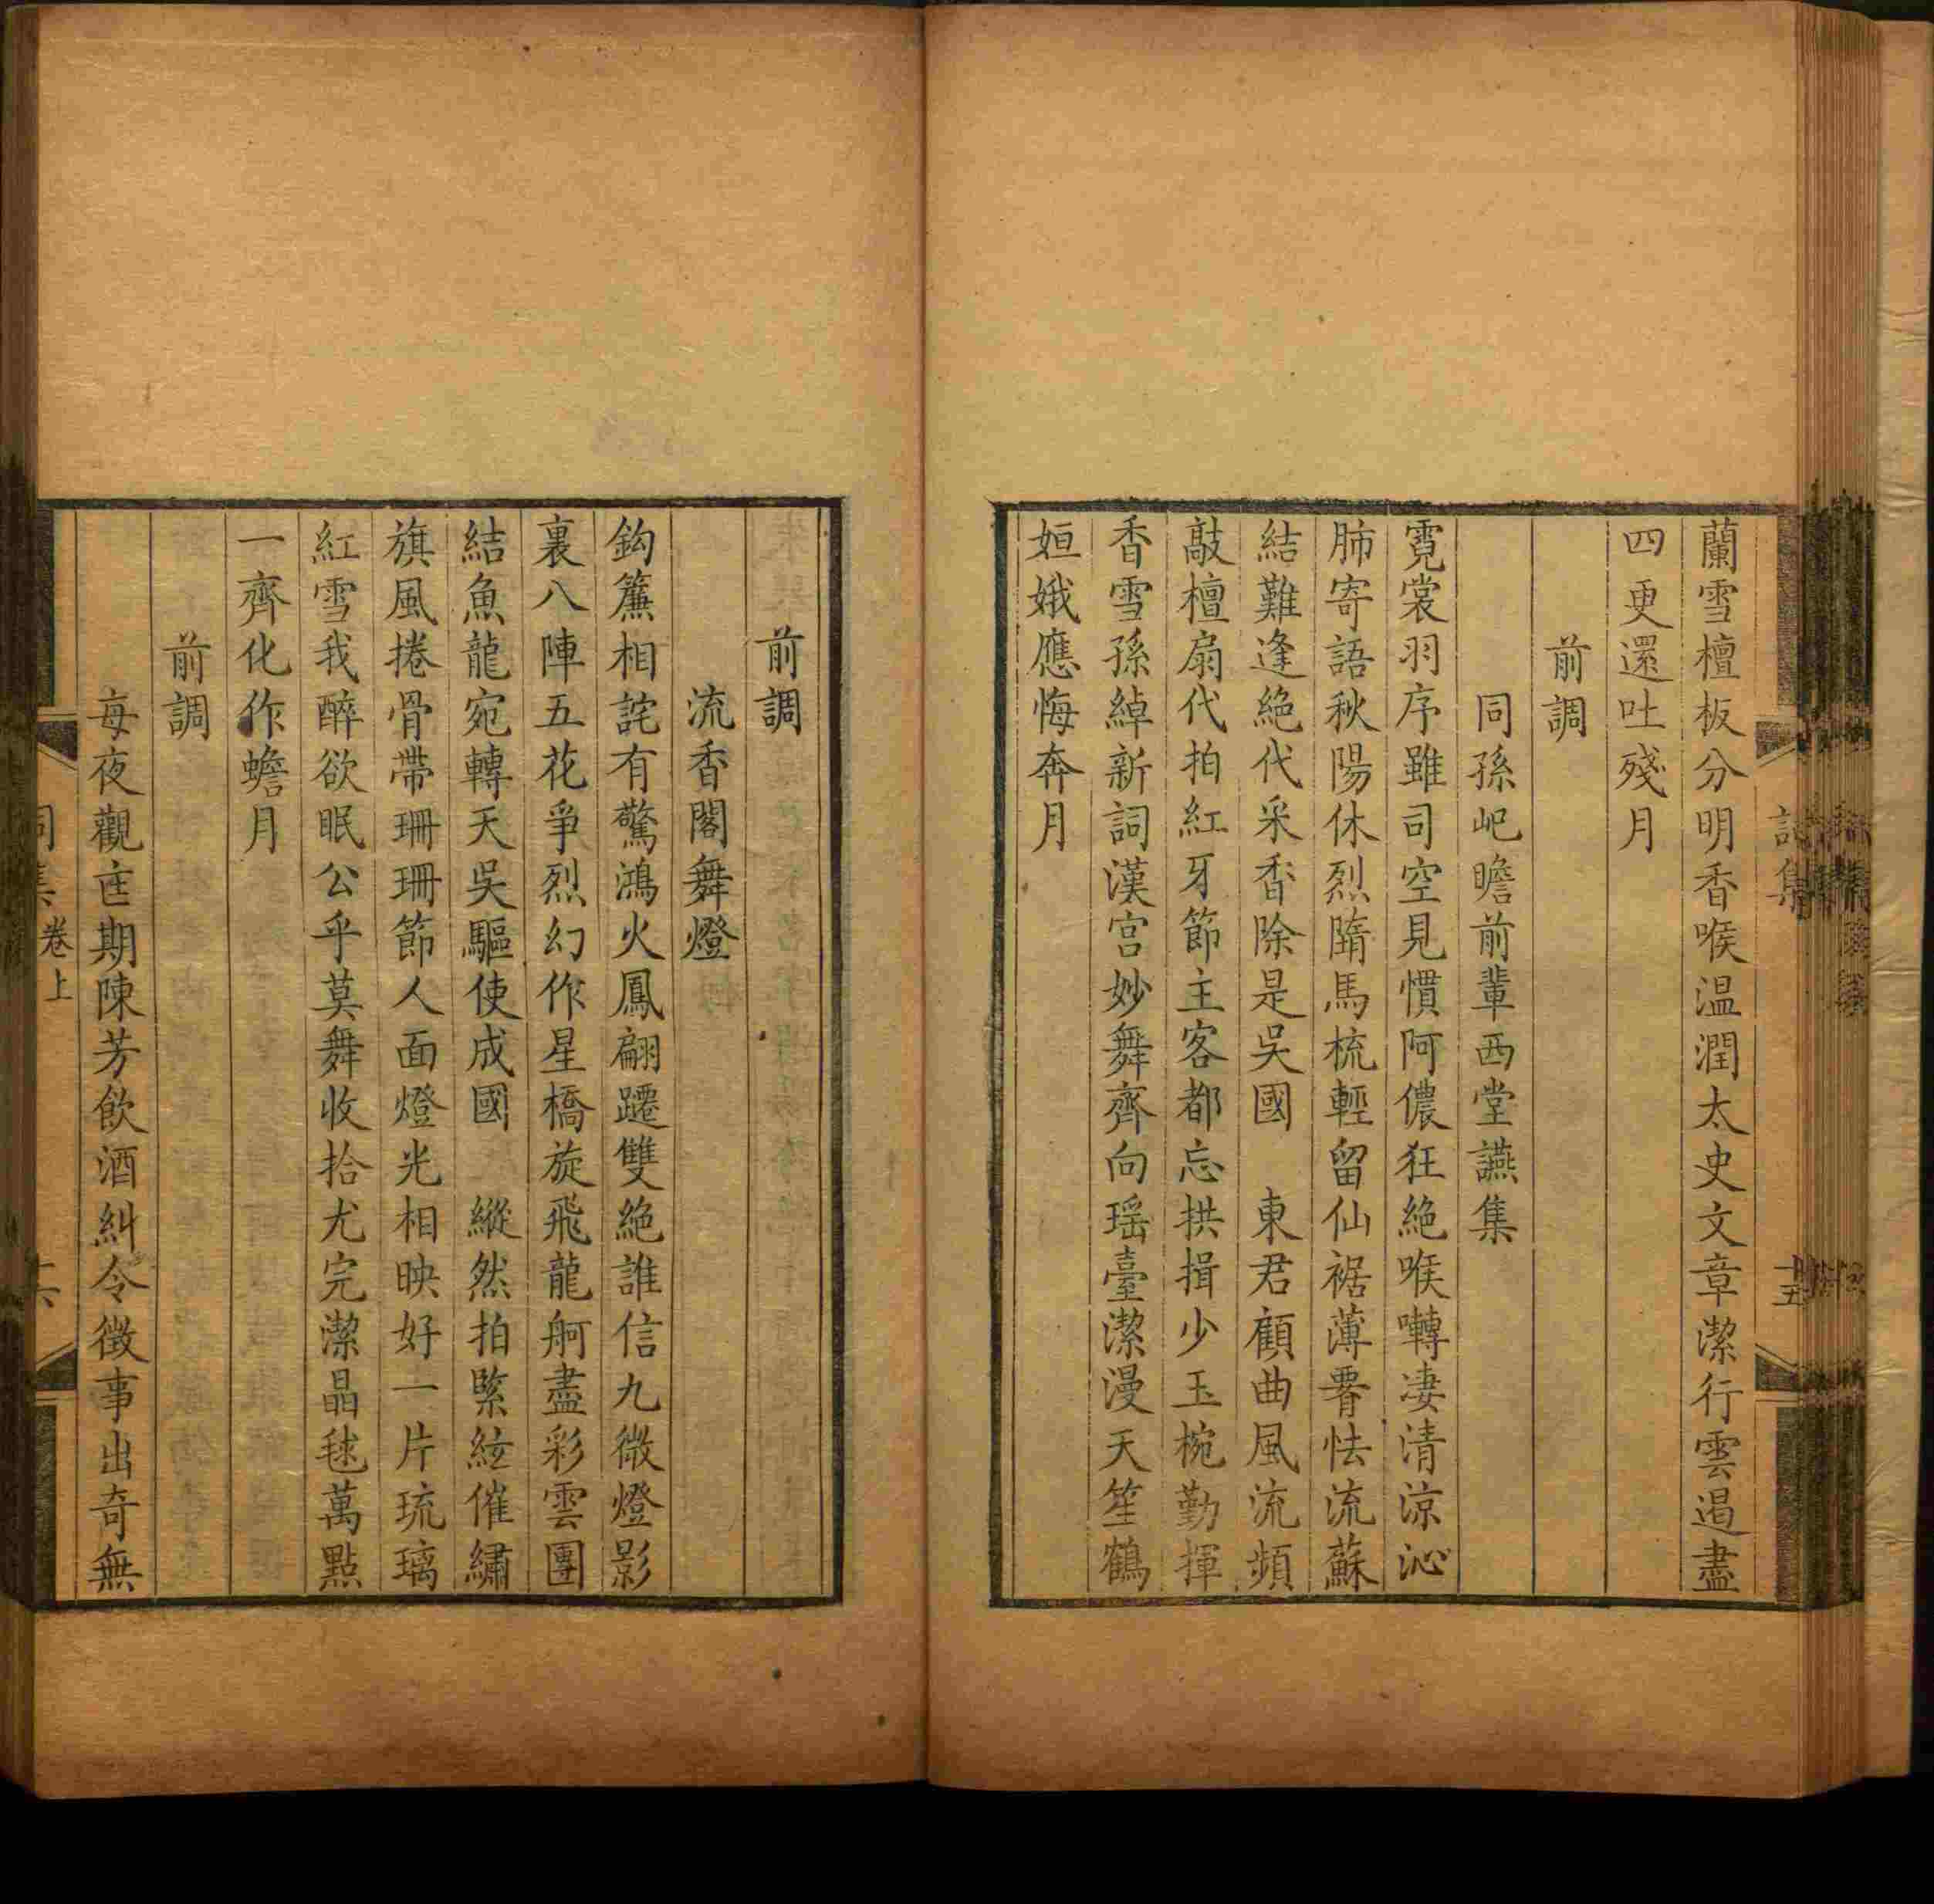 蘭雪檀板分明香喉温潤太史文章潔行雲遏盡
四更還吐殘月
前調
同孫屺瞻前輩西堂讌集
霓裳羽序雖司空見慣阿儂狂絶喉囀凄清涼沁
肺寄語秋陽休烈隋馬梳輕留仙裾薄罯怯流蘇
結難逢絶代采香除是吳國　東君顧曲風流頻
敲檀扇代拍紅牙節主客都忘拱揖少玉椀勤揮
香雪孫綽新詞漢宮妙舞齊向瑶臺潔漫天笙鶴
姮娥應悔奔月
詞集
十五
前調
流香閣舞燈
鈎簾相詫有驚鴻火鳳翩躚雙絶誰信九微燈影
裏八陣五花爭烈幻作星橋旋飛龍舸盡彩雲團
結魚龍宛轉天吳驅使成國　縱然拍緊絃催繡
旗風捲骨帶珊珊節人面燈光相映好一片琉璃
紅雪我醉欲眠公乎莫舞收拾尤完潔晶毬萬點
一齊化作蟾月
前調
每夜觀迮期陳芳飲酒糾令徵事出奇無
詞集卷上
十六